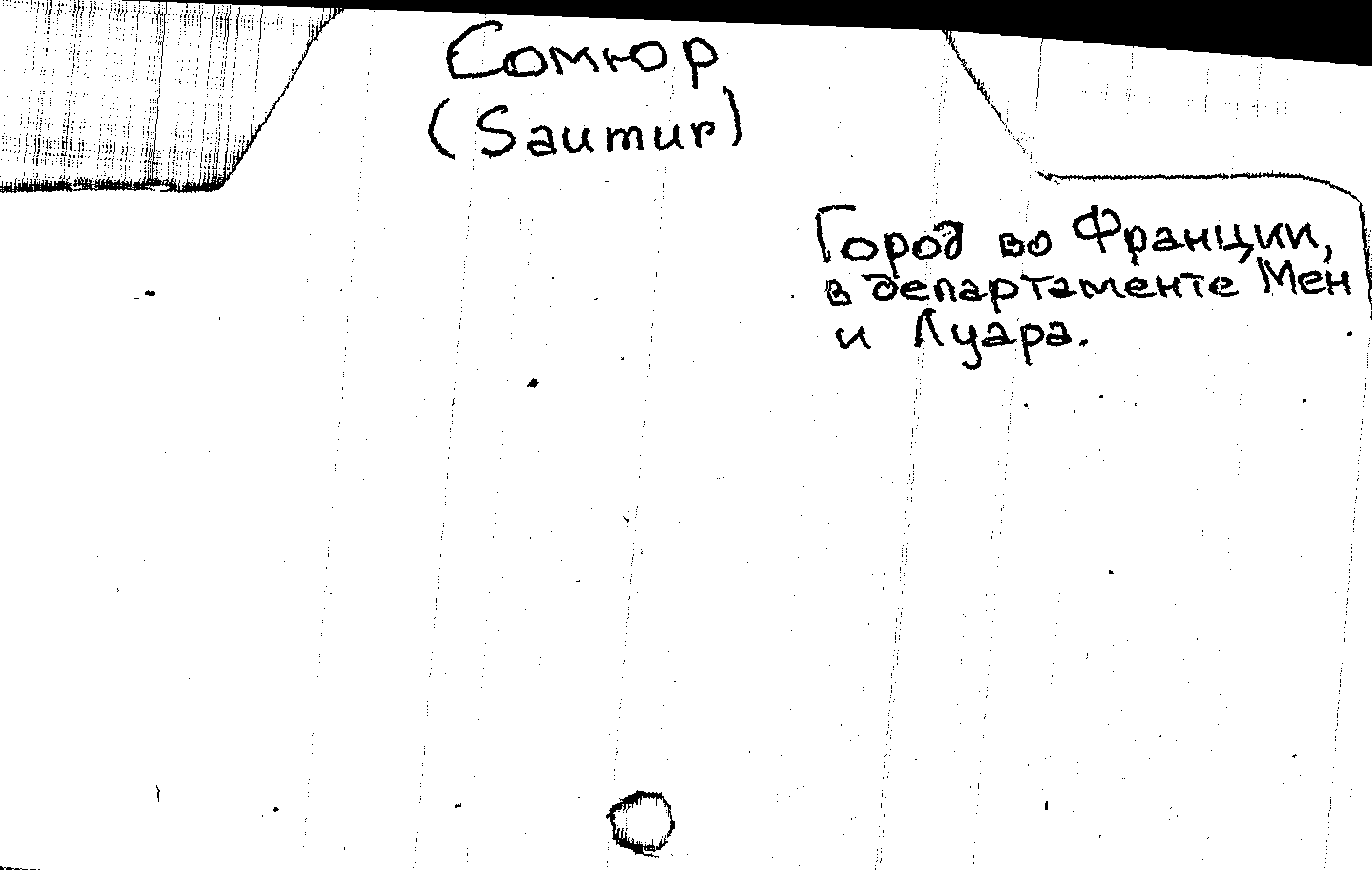 Сомюр
(Saumur)
Город во Франции,
в департаменте Мен
и Луара.